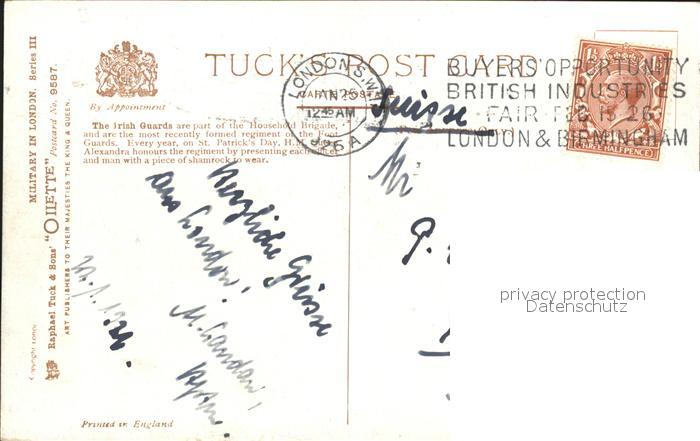 TUCK'S POST CARD
CARTE POSTALE
By Appointment
The Irish Guards are part of the Household Brigade,
and are the most recently formed regiment of the
Guards. Every year, on St. Patrick's Day, H.M.
Alexandra honours the regiment by presenting each officer
and man with a piece of shamrock to wear.
MILITARY IN LONDON. Series III
Postcard No. 9587.
Raphael Tuck & Sons' "OILETTE"
ART PUBLISHERS TO THEIR MAJESTIES THE KING & QUEEN.
Copyright London
Printed in England
LONDON. S.W.1
12.45 AM
1926A
BUYERS' OPPORTUNITY
BRITISH INDUSTRIES
FAIR FEB 15-26
LONDON & BIRMINGHAM
THREE HALFPENCE
Suisse
Mr
Herzliche Grüsse
aus London!
privacy protection
Datenschutz